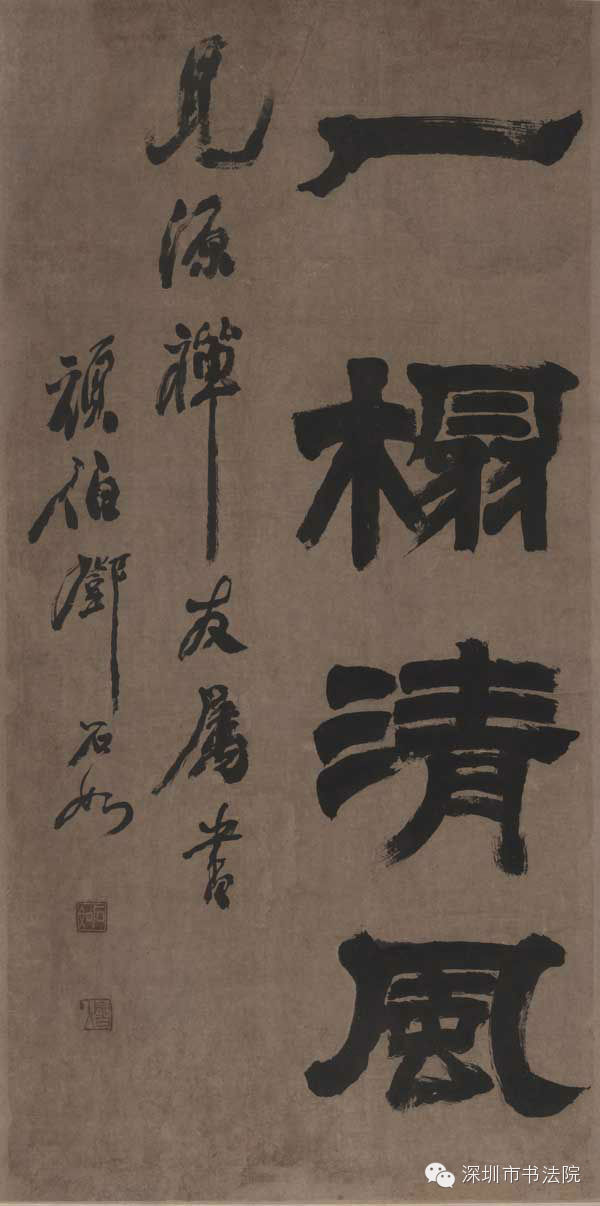 一榻清風
見源禪友属書
頑伯鄧石如
深圳市书法院